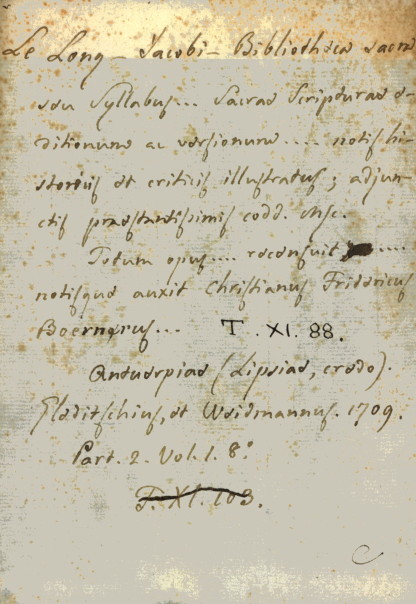 Le Long - Jacobi - Bibliotheca sacra
seu Syllabus... Sacrae Scripturae e-
ditionum ac versionum .... notis hi-
storicis et criticis illustratus; adjun-
ctis praestantissimis codd. Msc.
Totum opus.... recensuit ....
notisque auxit Christianus Fridericus
Boernerus... T. XI. 88.
Antuerpiae (Lipsiae, credo).
Gleditschius, et Weidmannus. 1709.
Part. 2. Vol. 1. 8°
T. XI. 103.
C